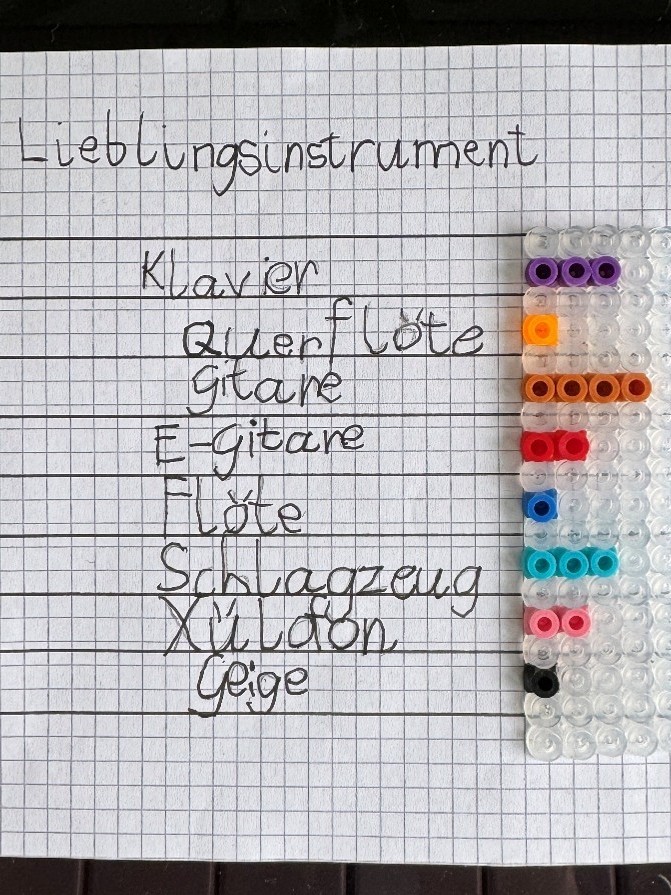 Lieblingsinstrument
Klavier
Querflöte
gitare
E-gitare
Flöte
Schlagzeug
Xüldfon
Geige